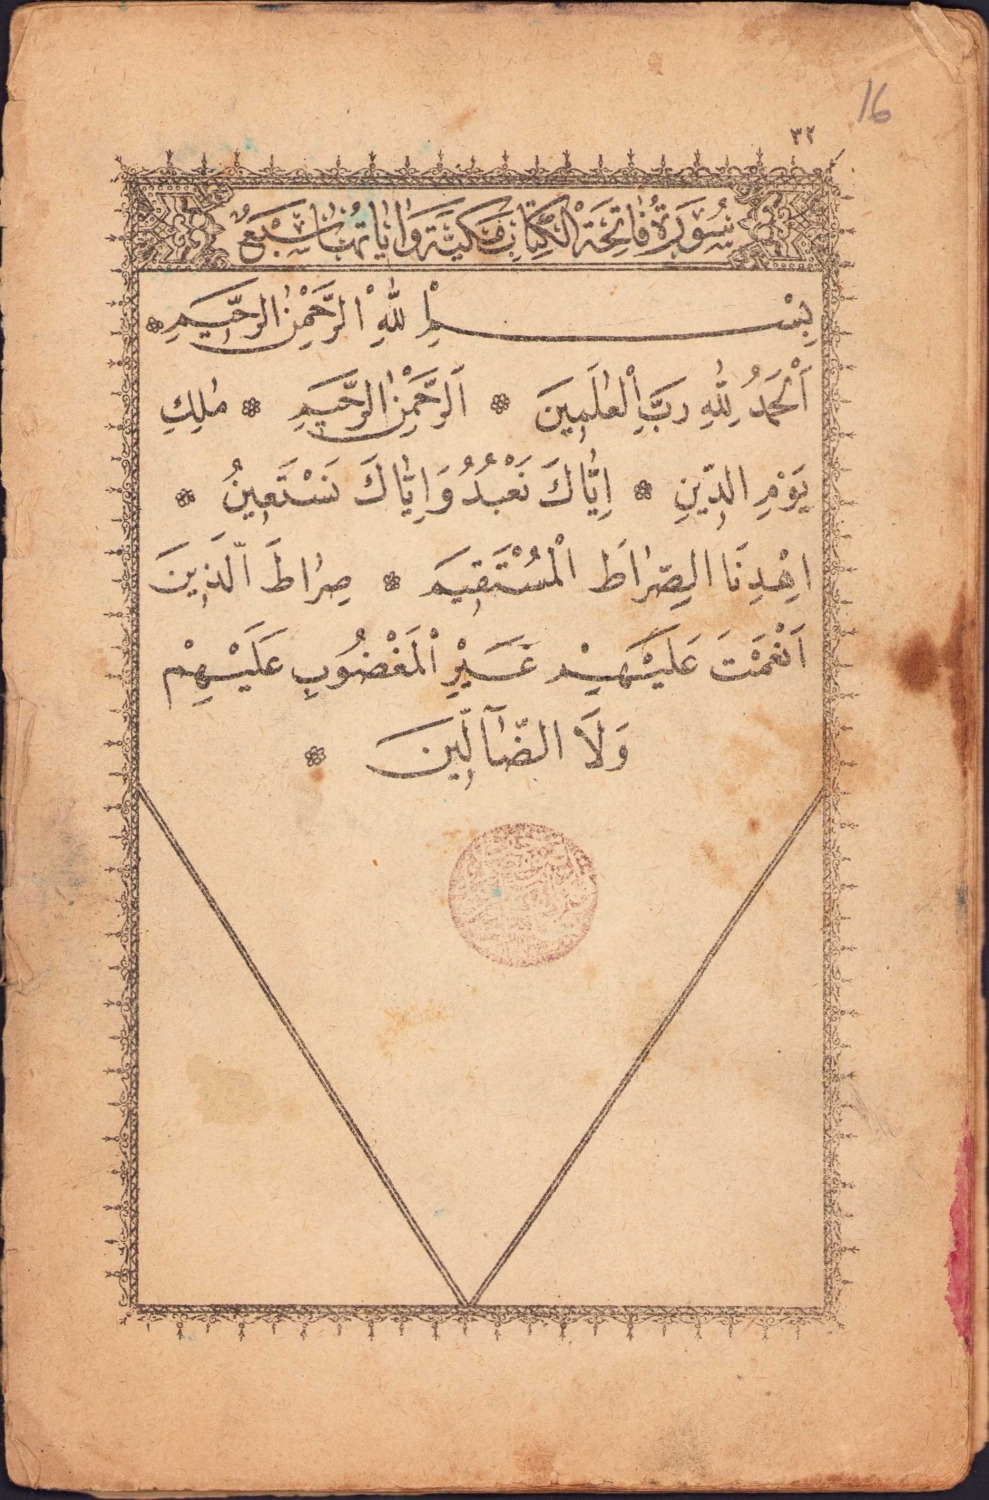 16
٣٢
سُورَةُ فَاتِحَةِ الْكِتَابِ مَكِّيَّةٌ وَاٰيَاتُهَا سَبْعٌ
بِسْمِ اللّٰهِ الرَّحْمٰنِ الرَّحِيمِ ۞
اَلْحَمْدُ لِلّٰهِ رَبِّ الْعٰلَمِينَ ۞ اَلرَّحْمٰنِ الرَّحِيمِ ۞ مٰلِكِ
يَوْمِ الدِّينِ ۞ اِيَّاكَ نَعْبُدُ وَاِيَّاكَ نَسْتَعِينُ ۞
اِهْدِنَا الصِّرَاطَ الْمُسْتَقِيمَ ۞ صِرَاطَ الَّذِينَ
اَنْعَمْتَ عَلَيْهِمْ غَيْرِ الْمَغْضُوبِ عَلَيْهِمْ
وَلَا الضَّآلِّينَ ۞